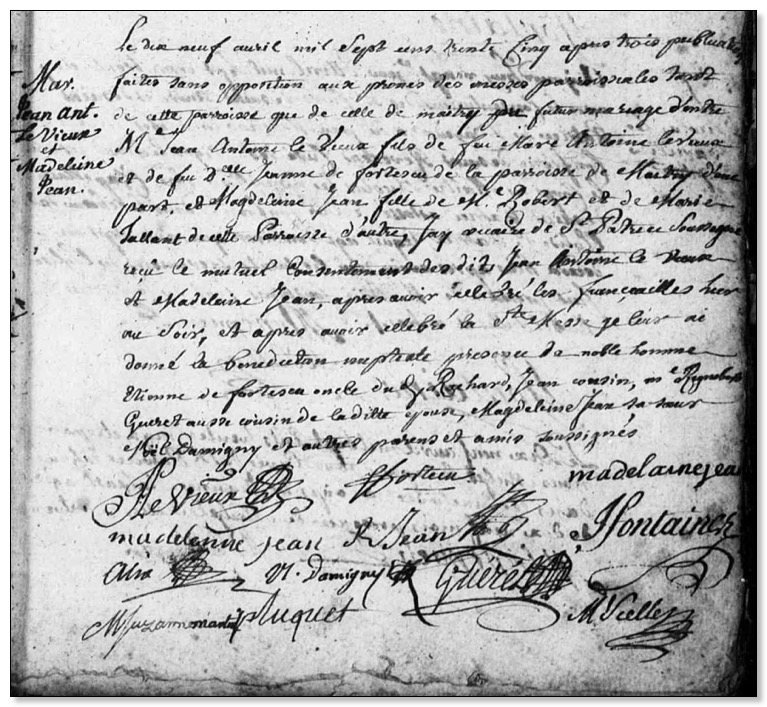 Mar.
Jean Ant.
Le Vieux
et
Madeleine
Jean.
Le dix neuf avril mil sept cens trente Cinq apres trois publications
faites sans opposition aux prones des messes parroissiales tant
de cette parroisse que de celle de maitry du futur mariage d'entre
Me Jean Antoine le Vieux fils de feu Marc Antoine le vieux
et de feu Delle Jeanne de fortescu de la parroisse de Maitry d'une
part, et Magdelaine Jean fille de Me Robert et de Marie
Tallent de cette Parroisse d'autre, Jay vicaire de St Patrice Soussigné
recu le mutuel Consentement des dits Jean Antoine le Vieux
et Madelaine Jean, apres avoir celebré les françailles hier
au soir, et apres avoir cellebré la Ste Messe je leur ai
donné la benediction nuptiale presence de noble homme
Etienne de fortescu oncle du Richard, Jean cousin, me
Gueret aussi cousin de la ditte epouse, Magdeleine Jean sa sœur
Noël Damigny et autres parens et amis soussignés
Le Vieux fortescu madelaine jean
madelenne jean R Jean Jfontaine
Alix N. Damigny Gueret
pluquet M Vielle